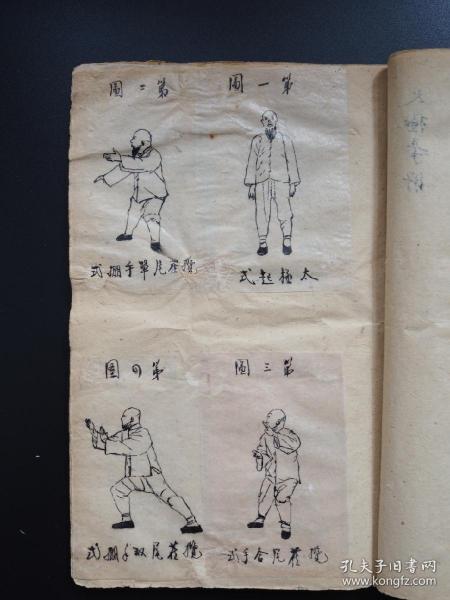 第一圖
太極起式
第二圖
攬雀尾單手掤式
第三圖
攬雀尾合手式
第四圖
攬雀尾双手掤式
孔夫子旧书网